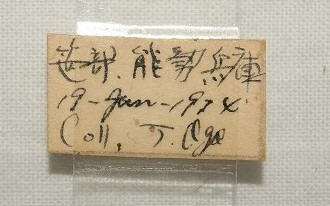 笹部. 能勢 兵庫
19-Jan-1974.
Coll, T. Oge